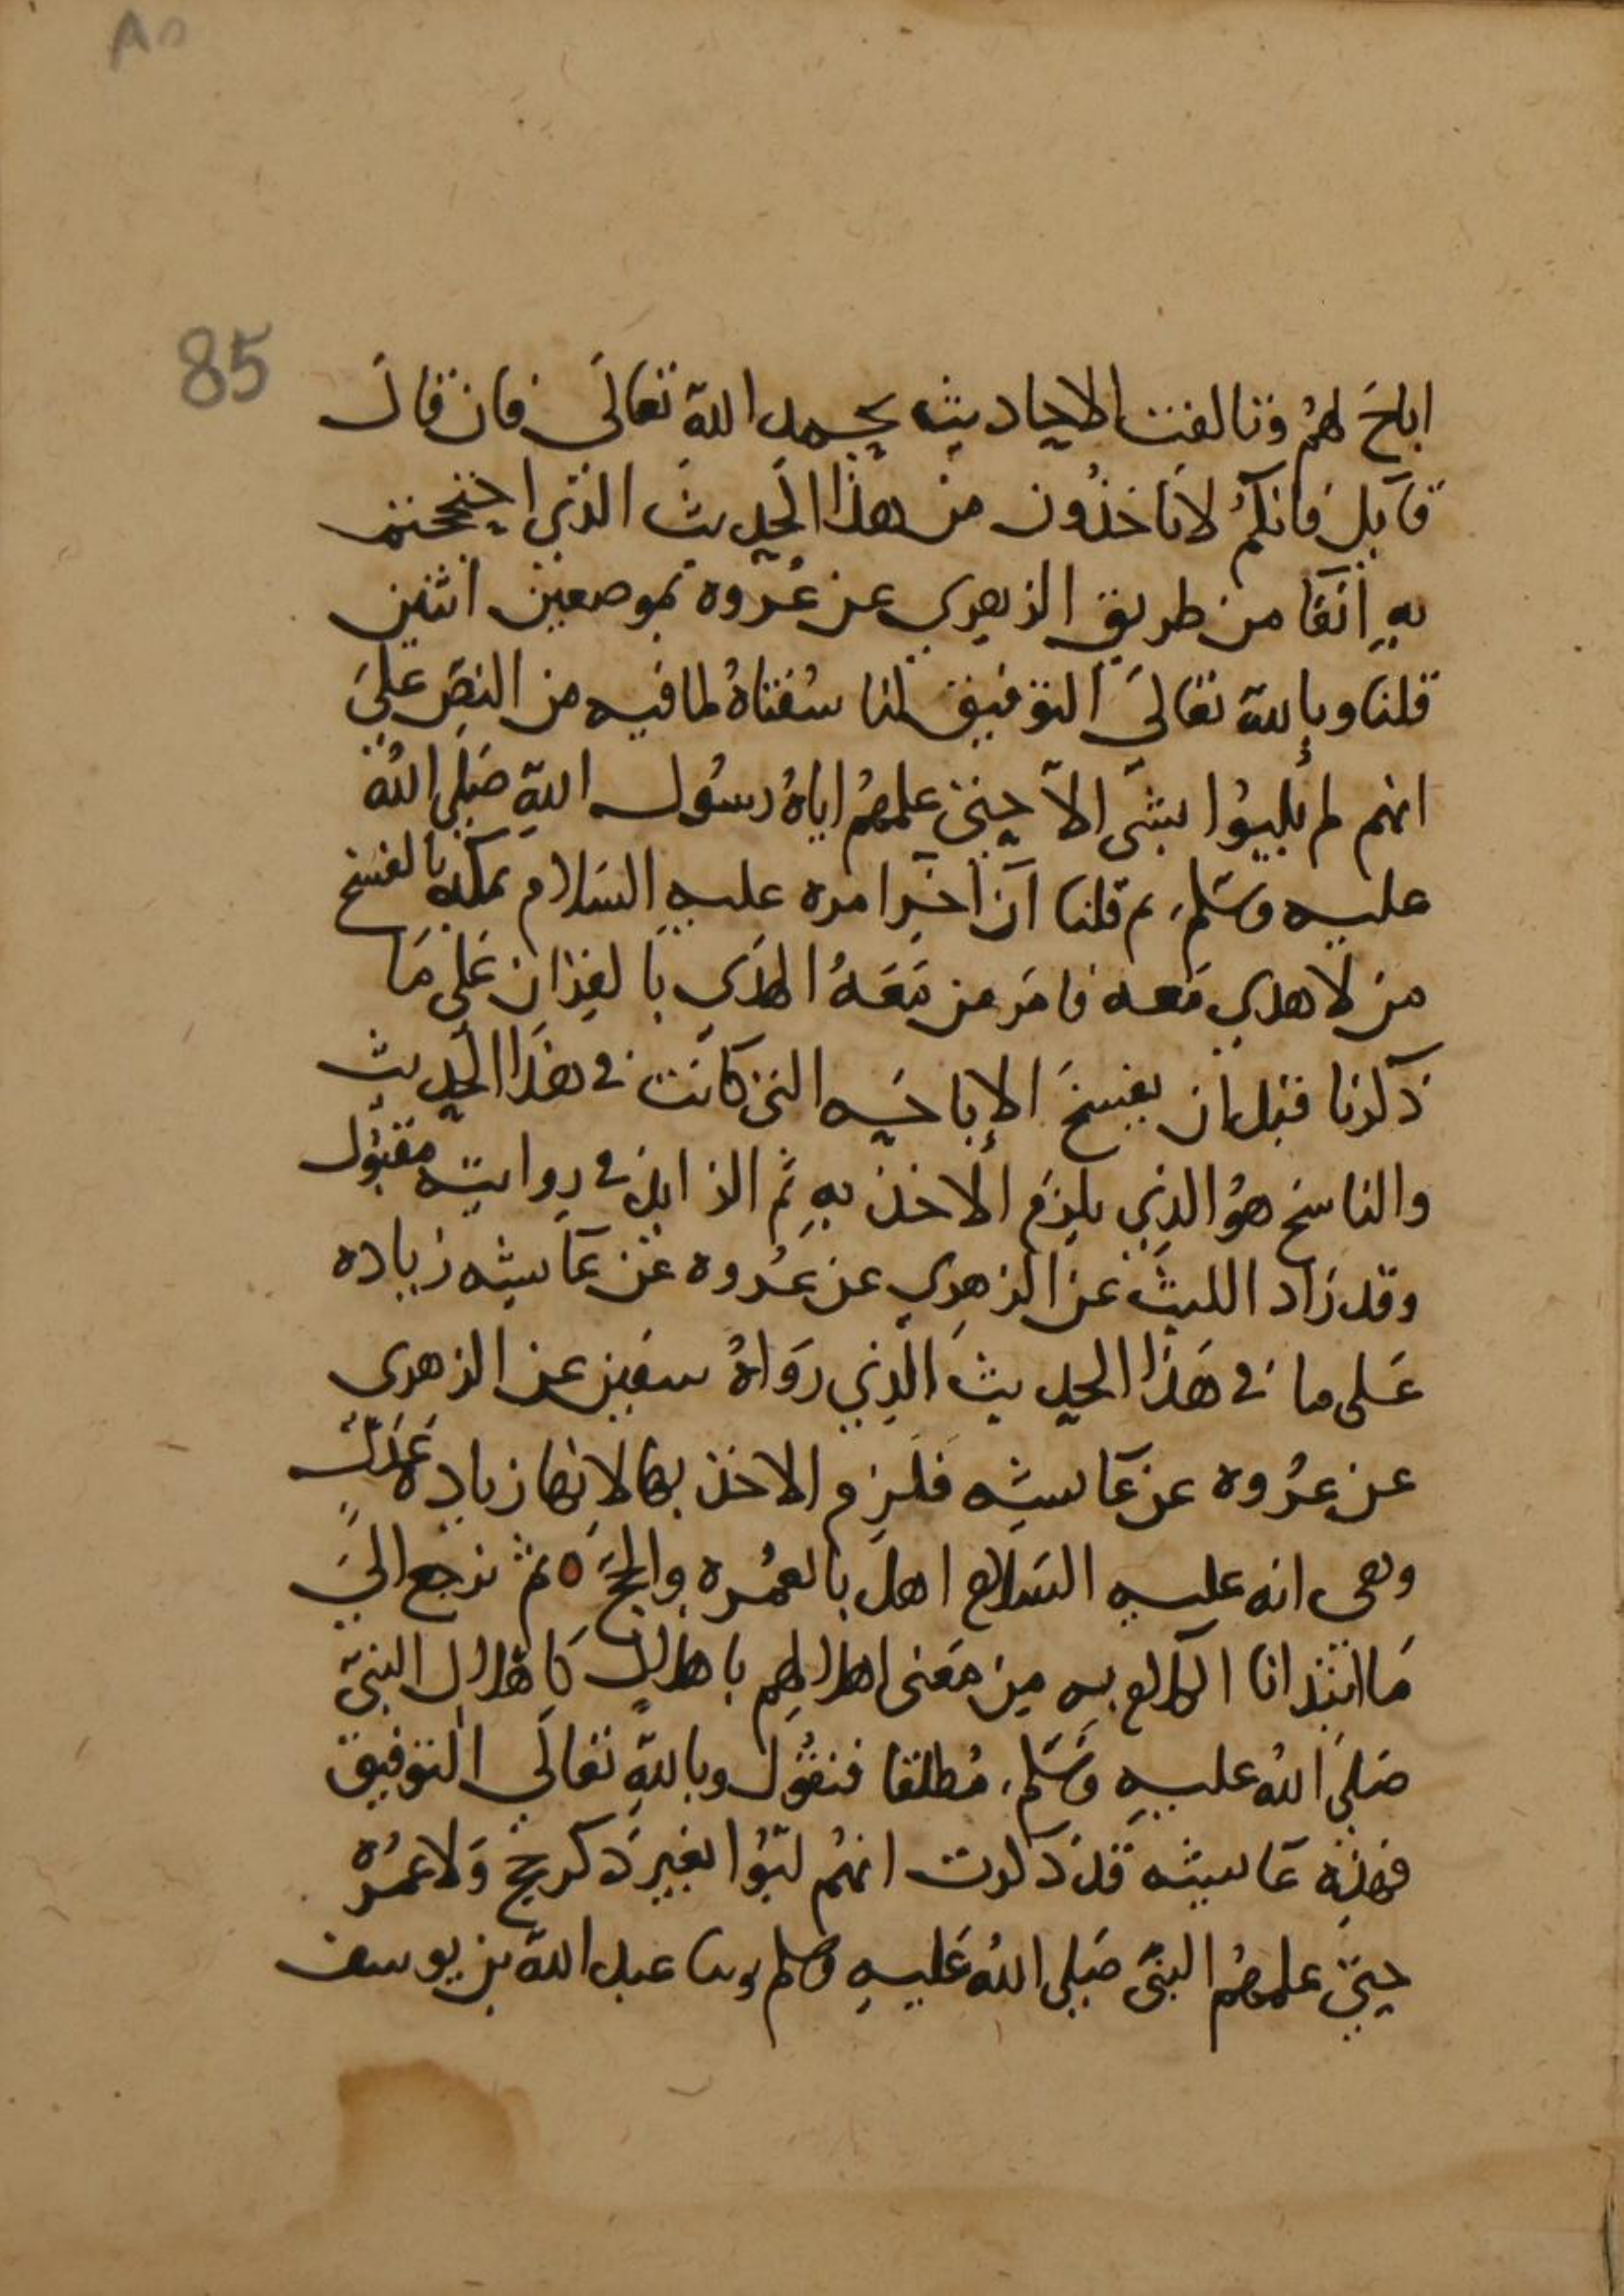 ٨٥
85
اباح لهم وتالفت الاحاديث بحمد الله تعالى فان قال
قايل فانكم لا تاخذون من هذا الحديث الذي احتججتم
به انفا من طريق الزهري عن عروه بموضعين اثنين
قلنا وبالله تعالى التوفيق لنا سقناه لما فيه من النص على
انهم لم يلبوا بشى الا حيث علمهم اياه رسول الله صلى الله
عليه وسلم، ثم قلنا ان اخر امره عليه السلام بمكه بالفسخ
من لا هدي معه فامر من معه الهدي بالقران على ما
ذكرنا قبل ان يفسخ الإباحه التى كانت في هذا الحديث
والناسخ هو الذي يلزم الاخذ به ثم الزايد في روايته مقبول
وقد زاد الليث عن الزهري عن عروه عن عايشه زياده
على ما في هذا الحديث الذي رواه سفين عن الزهرى
عن عروه عن عايشه فلزم الاخذ بها لانها زياده عدل
وهى انه عليه السلام اهل بالعمره والحج ٥ ثم نرجع الى
ما ابتدانا الكلام به من معنى اهلالهم باهلال كاهلال النبى
صلى الله عليه وسلم، مطلقا فنقول وبالله تعالى التوفيق
فهذه عايشه قد ذكرت انهم لبوا بغير ذكر حج ولا عمره
حيث علمهم النبى صلى الله عليه وسلم وسا عبد الله بن يوسف